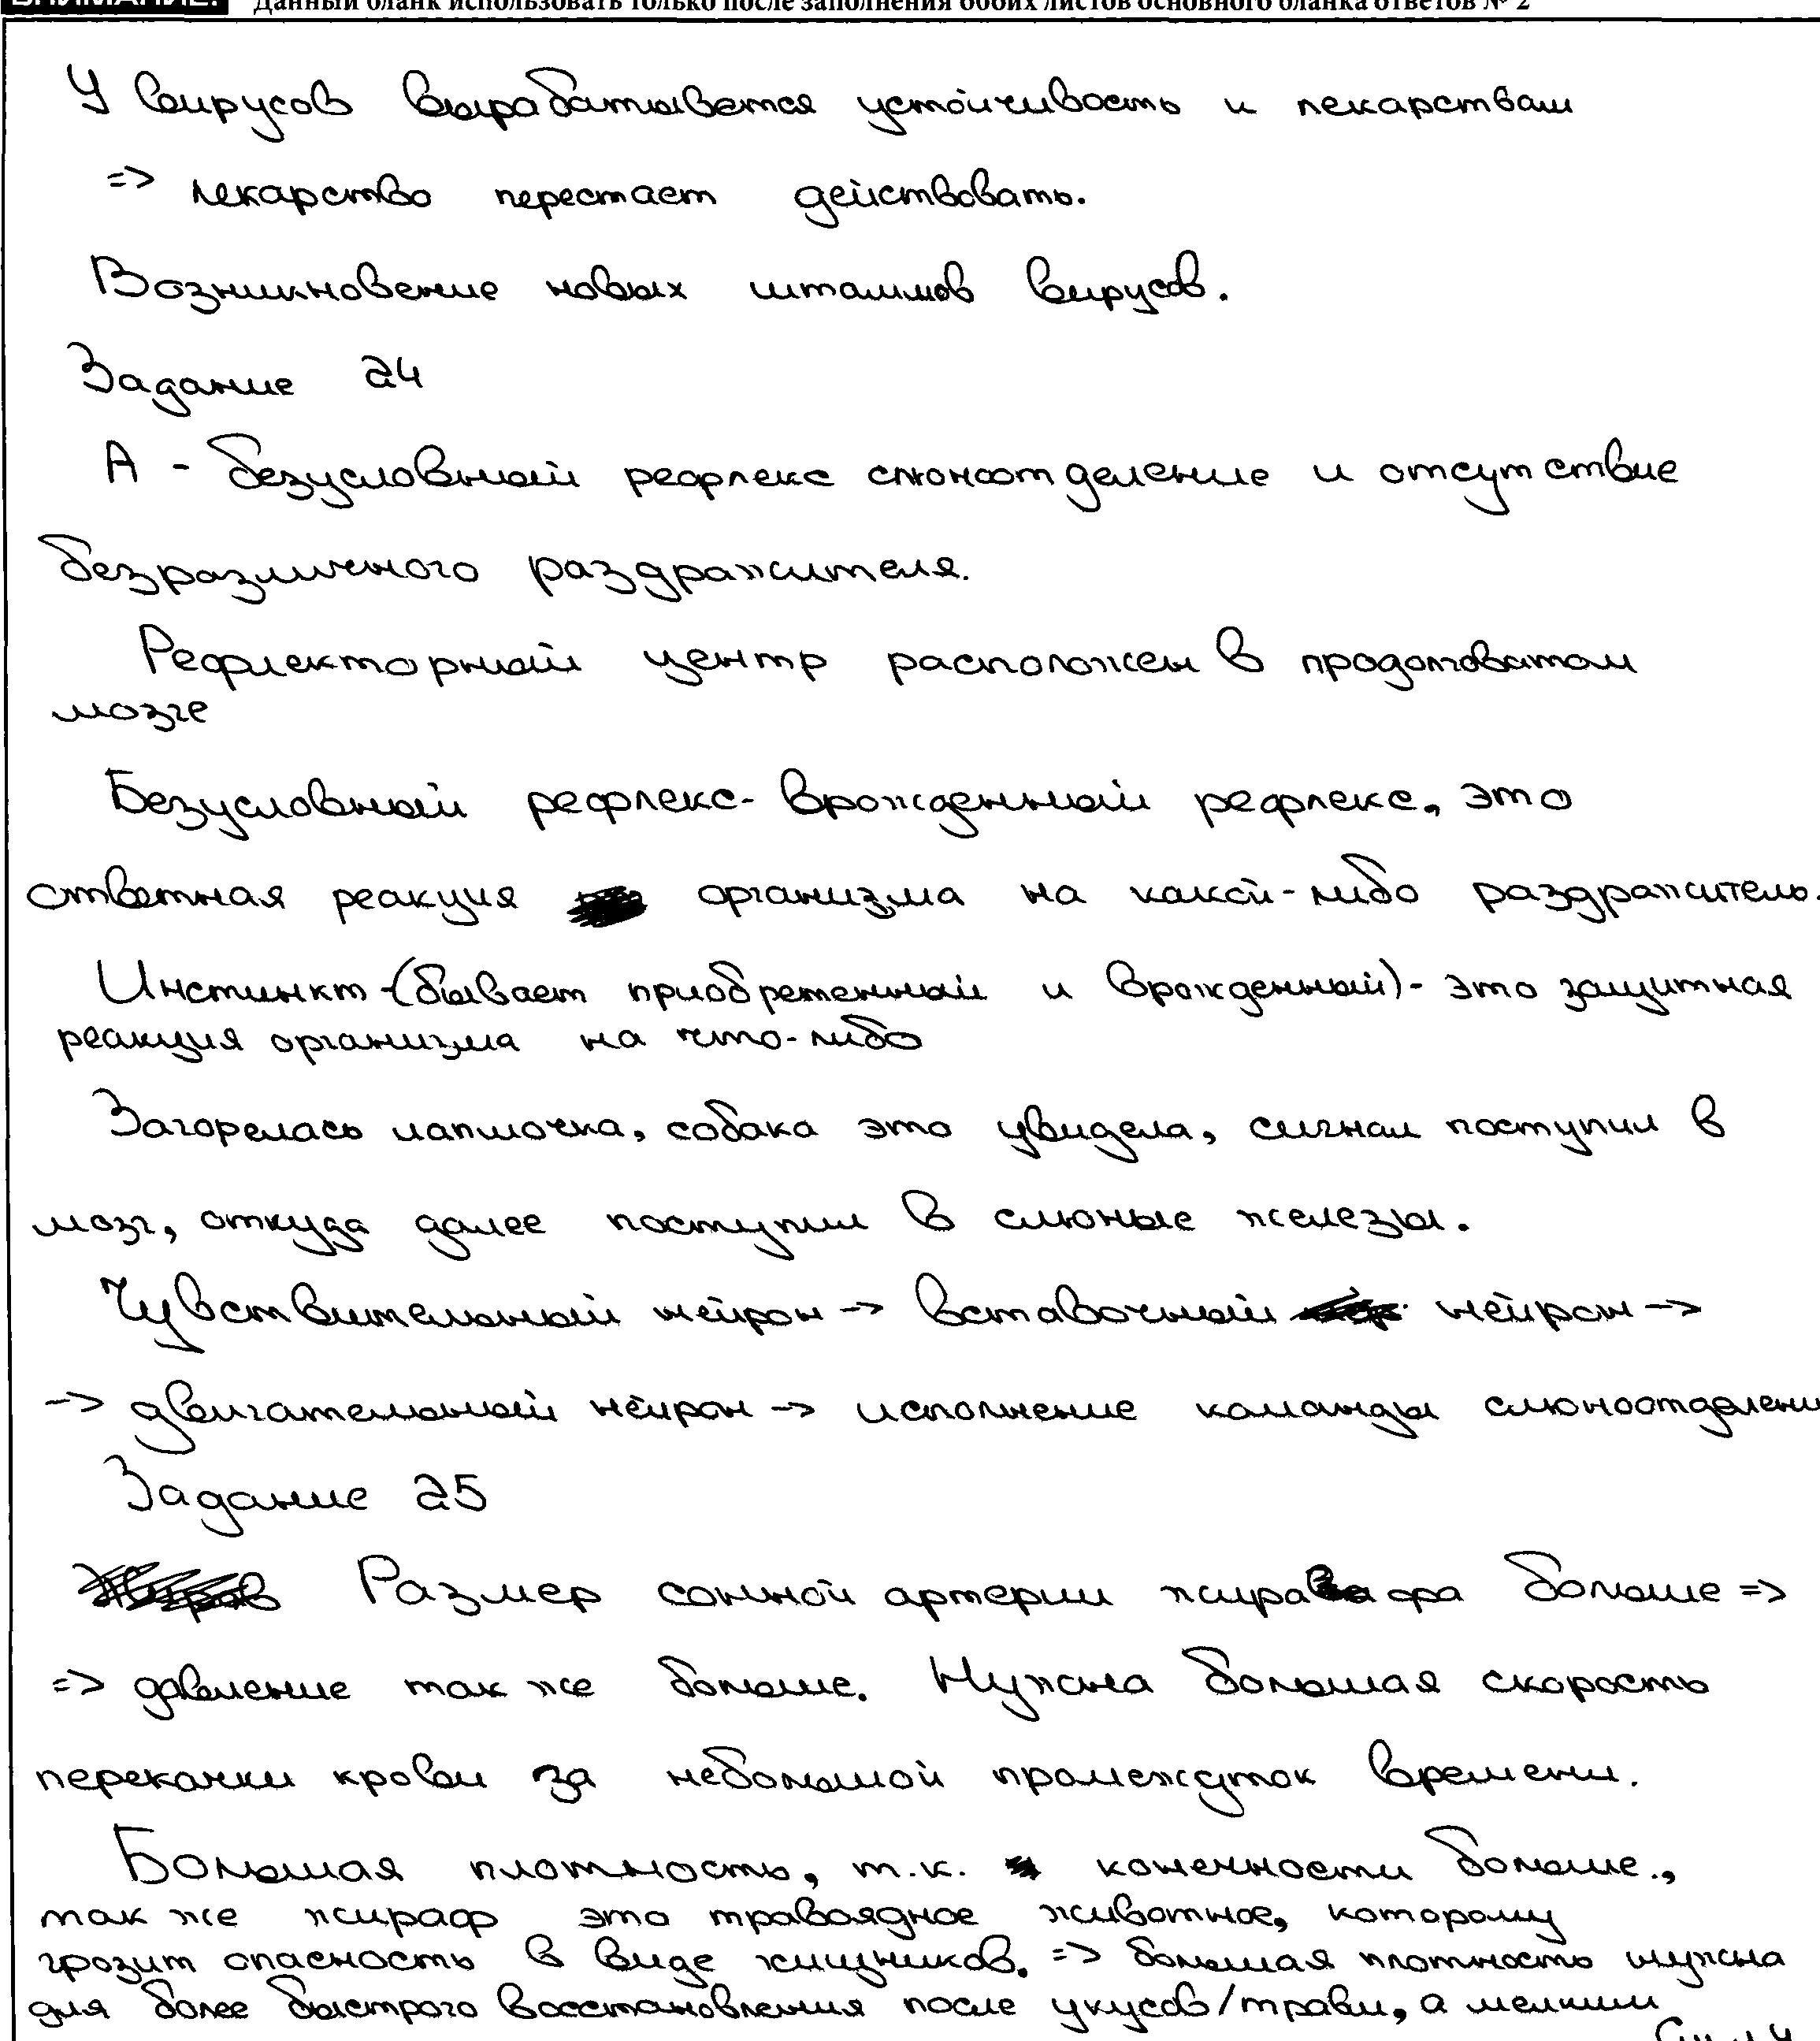 ВНИМАНИЕ! Данный бланк использовать только после заполнения обоих листов основного бланка ответов № 2
У вирусов вырабатывается устойчивость к лекарствам
=> лекарство перестает действовать.
Возникновение новых штаммов вирусов.
Задание 24
А - безусловный рефлекс слюноотделение и отсутствие
безразличного раздражителя.
Рефлекторный центр расположен в продолговатом
мозге
Безусловный рефлекс- врожденный рефлекс, это
ответная реакция организма на какой-либо раздражитель.
Инстинкт-(бывает приобретенный и врожденный)- это защитная
реакция организма на что-либо
Загорелась лапмочка, собака это увидела, сигнал поступил в
мозг, откуда далее поступил в слюные железы.
Чувствительный нейрон -> вставочный нейрон ->
-> двигательный нейрон -> исполнение команды слюноотделени
Задание 25
Размер сонной артерии жирафа больше =>
=> давление так же больше. Нужна большая скорость
перекачки крови за небольшой промежуток времени.
Большая плотность, т.к. конечности больше.,
так же жираф это травоядное животное, которому
грозит опасность в виде хищников. => большая плотность нужна
для более быстрого восстановления после укусов/травм, а мелким